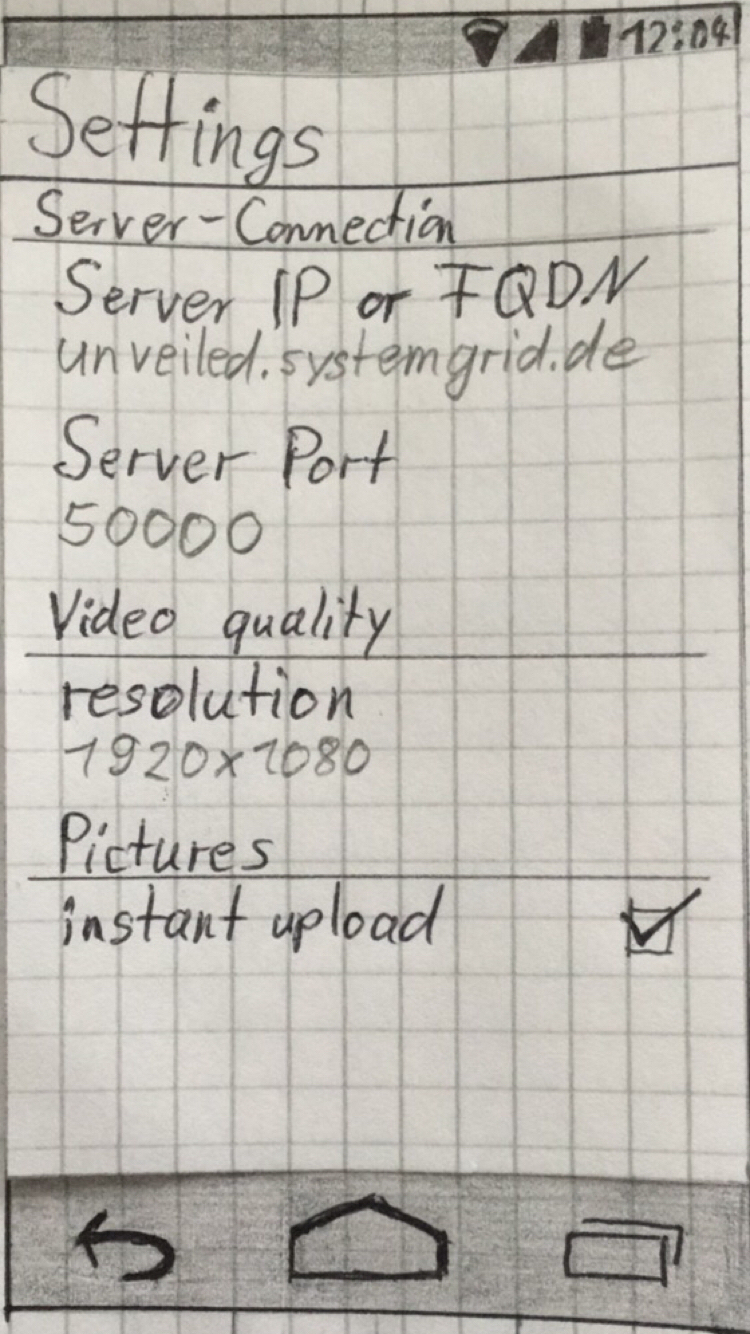 12:04
Settings
Server-Connection
Server IP or FQDN
unveiled.systemgrid.de
Server Port
50000
Video quality
resolution
1920x1080
Pictures
instant upload